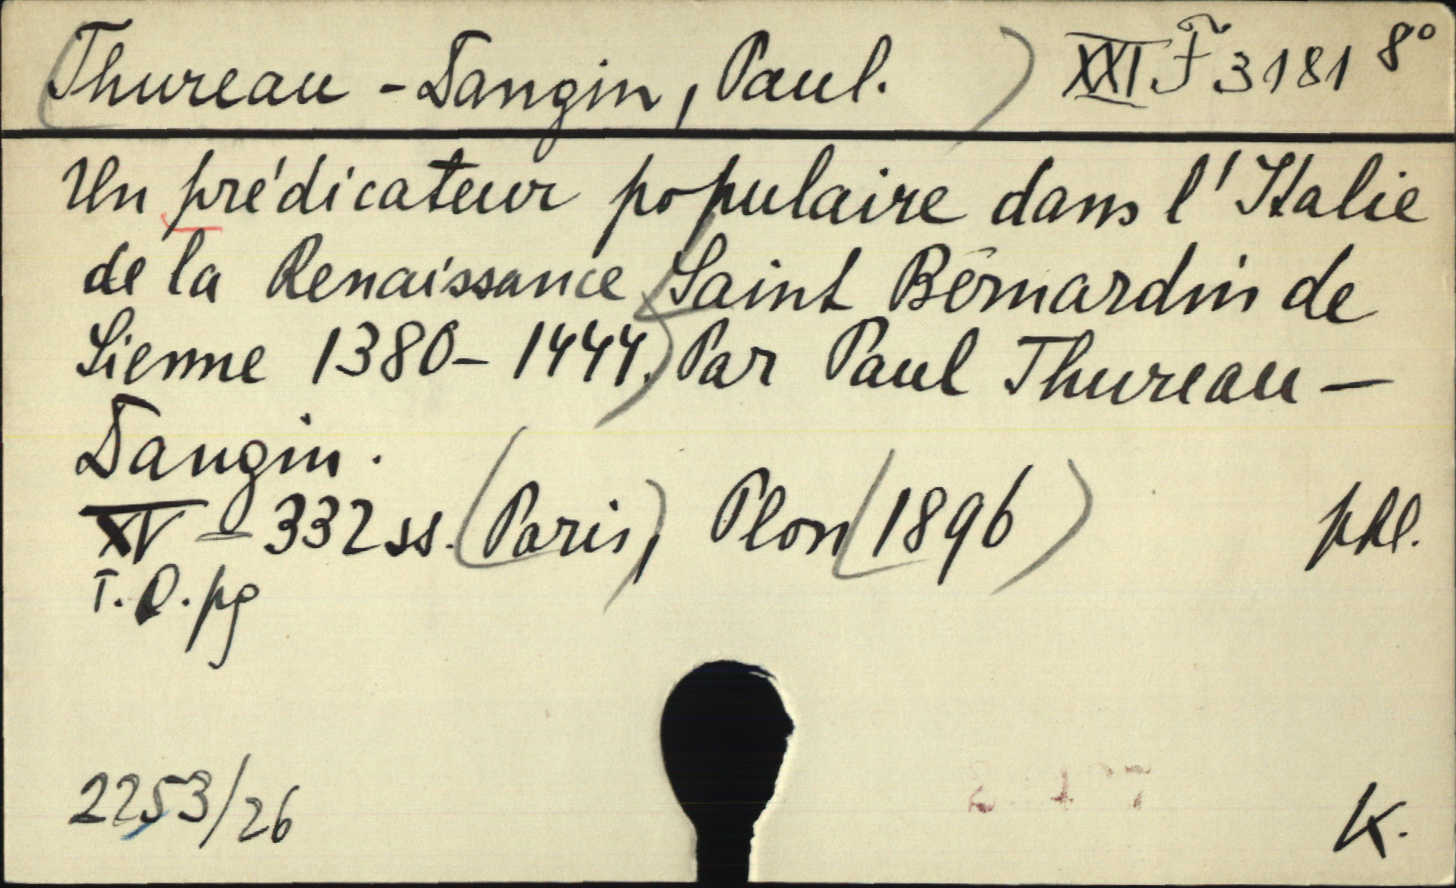 Thureau-Dangin, Paul. XXI F 3181 8°
Un prédicateur populaire dans l'Italie
de la Renaissance Saint Bernardin de
Sienne 1380-1444. Par Paul Thureau-
Dangin.
XV - 332 ss. (Paris), Plon (1896) ppl.
T. O. pg
2253/26 K.